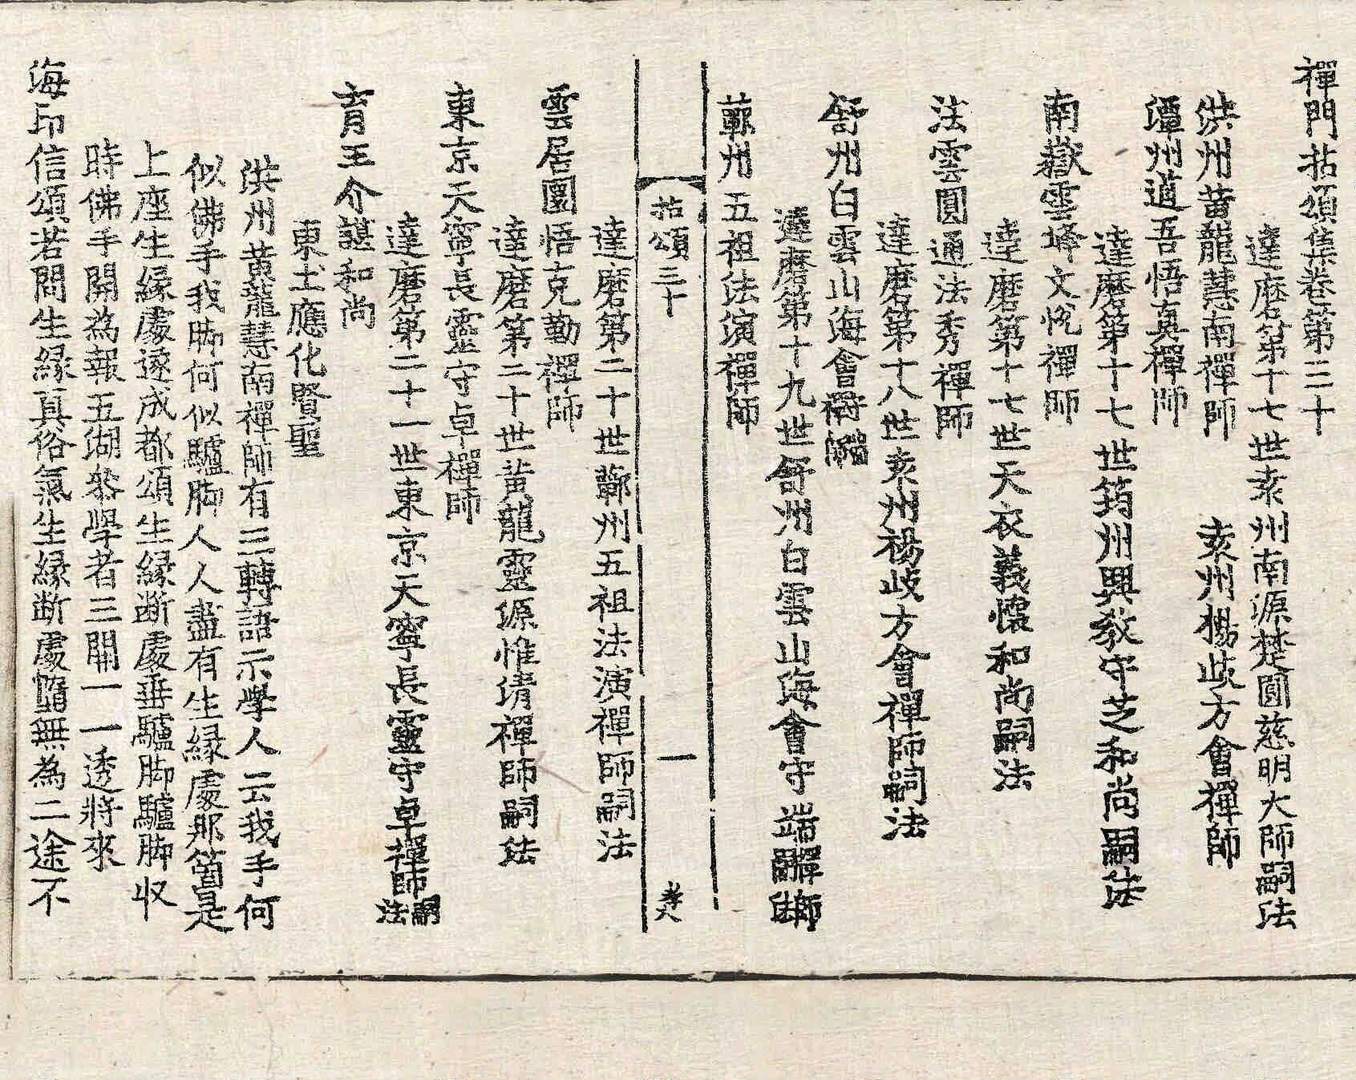 禪門拈頌集卷第三十
達磨第十七世袁州南源楚圓慈明大師嗣法
洪州黃龍慧南禪師　袁州楊歧方會禪師
潭州道吾悟真禪師
達磨第十七世筠州興教守芝和尚嗣法
南嶽雲峰文悅禪師
達磨第十七世天衣義懷和尚嗣法
法雲圓通法秀禪師
達磨第十八世袁州楊歧方會禪師嗣法
舒州白雲山海會守端禪師
達磨第十九世舒州白雲山海會守端禪師嗣法
蘄州五祖法演禪師
拈頌三十　一　孝八
達磨第二十世蘄州五祖法演禪師嗣法
雲居圜悟克勤禪師
達磨第二十世黃龍靈源惟清禪師嗣法
東京天寧長靈守卓禪師
達磨第二十一世東京天寧長靈守卓禪師嗣法
育王介諶和尚
東土應化賢聖
洪州黃龍慧南禪師有三轉語示學人云我手何
似佛手我脚何似驢脚人人盡有生緣處那箇是
上座生緣處遂成都頌生緣断處垂驢脚驢脚収
時佛手開為報五湖叅學者三關一一透將來
海印信頌若問生緣真俗氣生緣断處墮無為二途不